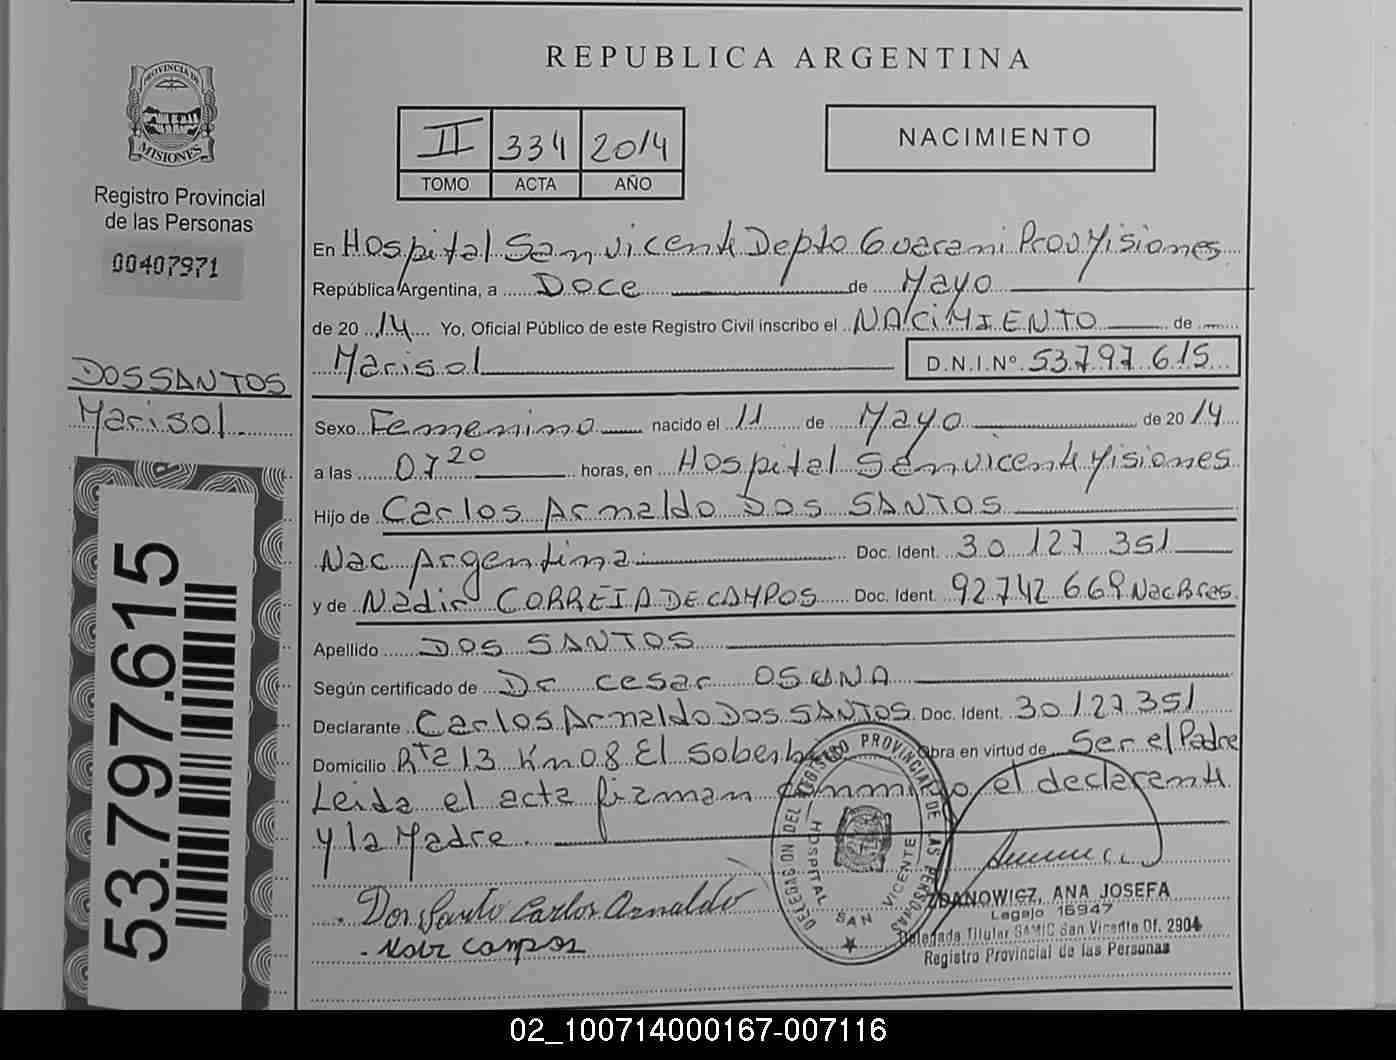 REPUBLICA ARGENTINA
PROVINCIA DE
MISIONES
Registro Provincial
de las Personas
00407971
II 334 2014
TOMO ACTA AÑO
NACIMIENTO
En Hospital San Vicente Depto Guarani Prov Misiones
República Argentina, a Doce de Mayo
de 2014 Yo, Oficial Público de este Registro Civil inscribo el NACIMIENTO de
Marisol D.N.I.Nº 53.797.615
DOS SANTOS
Marisol
Sexo Femenino nacido el 11 de Mayo de 2014
a las 07 20 horas, en Hospital San Vicente Misiones
Hijo de Carlos Arnaldo DOS SANTOS
Nac Argentina Doc. Ident. 30 127 351
y de Nadir CORREIA DE CAMPOS Doc. Ident. 92742669 Nac Bras.
Apellido DOS SANTOS
Según certificado de Dr cesar OSUNA
Declarante Carlos Arnaldo Dos SANTOS Doc. Ident. 30127351
Domicilio Rta 13 Km 08 El Soberbio Obra en virtud de Ser el Padre
Leida el acta firman conmigo el declarante
y la Madre
Dos Santo Carlos Arnaldo
campos
DELEGACION DEL REGISTRO PROVINCIAL DE LAS PERSONAS
HOSPITAL SAN VICENTE
ZDANOWICZ, ANA JOSEFA
Legajo 16947
Delegada Titular SAMIC San Vicente Of. 2904
Registro Provincial de las Personas
53.797.615
02_100714000167-007116